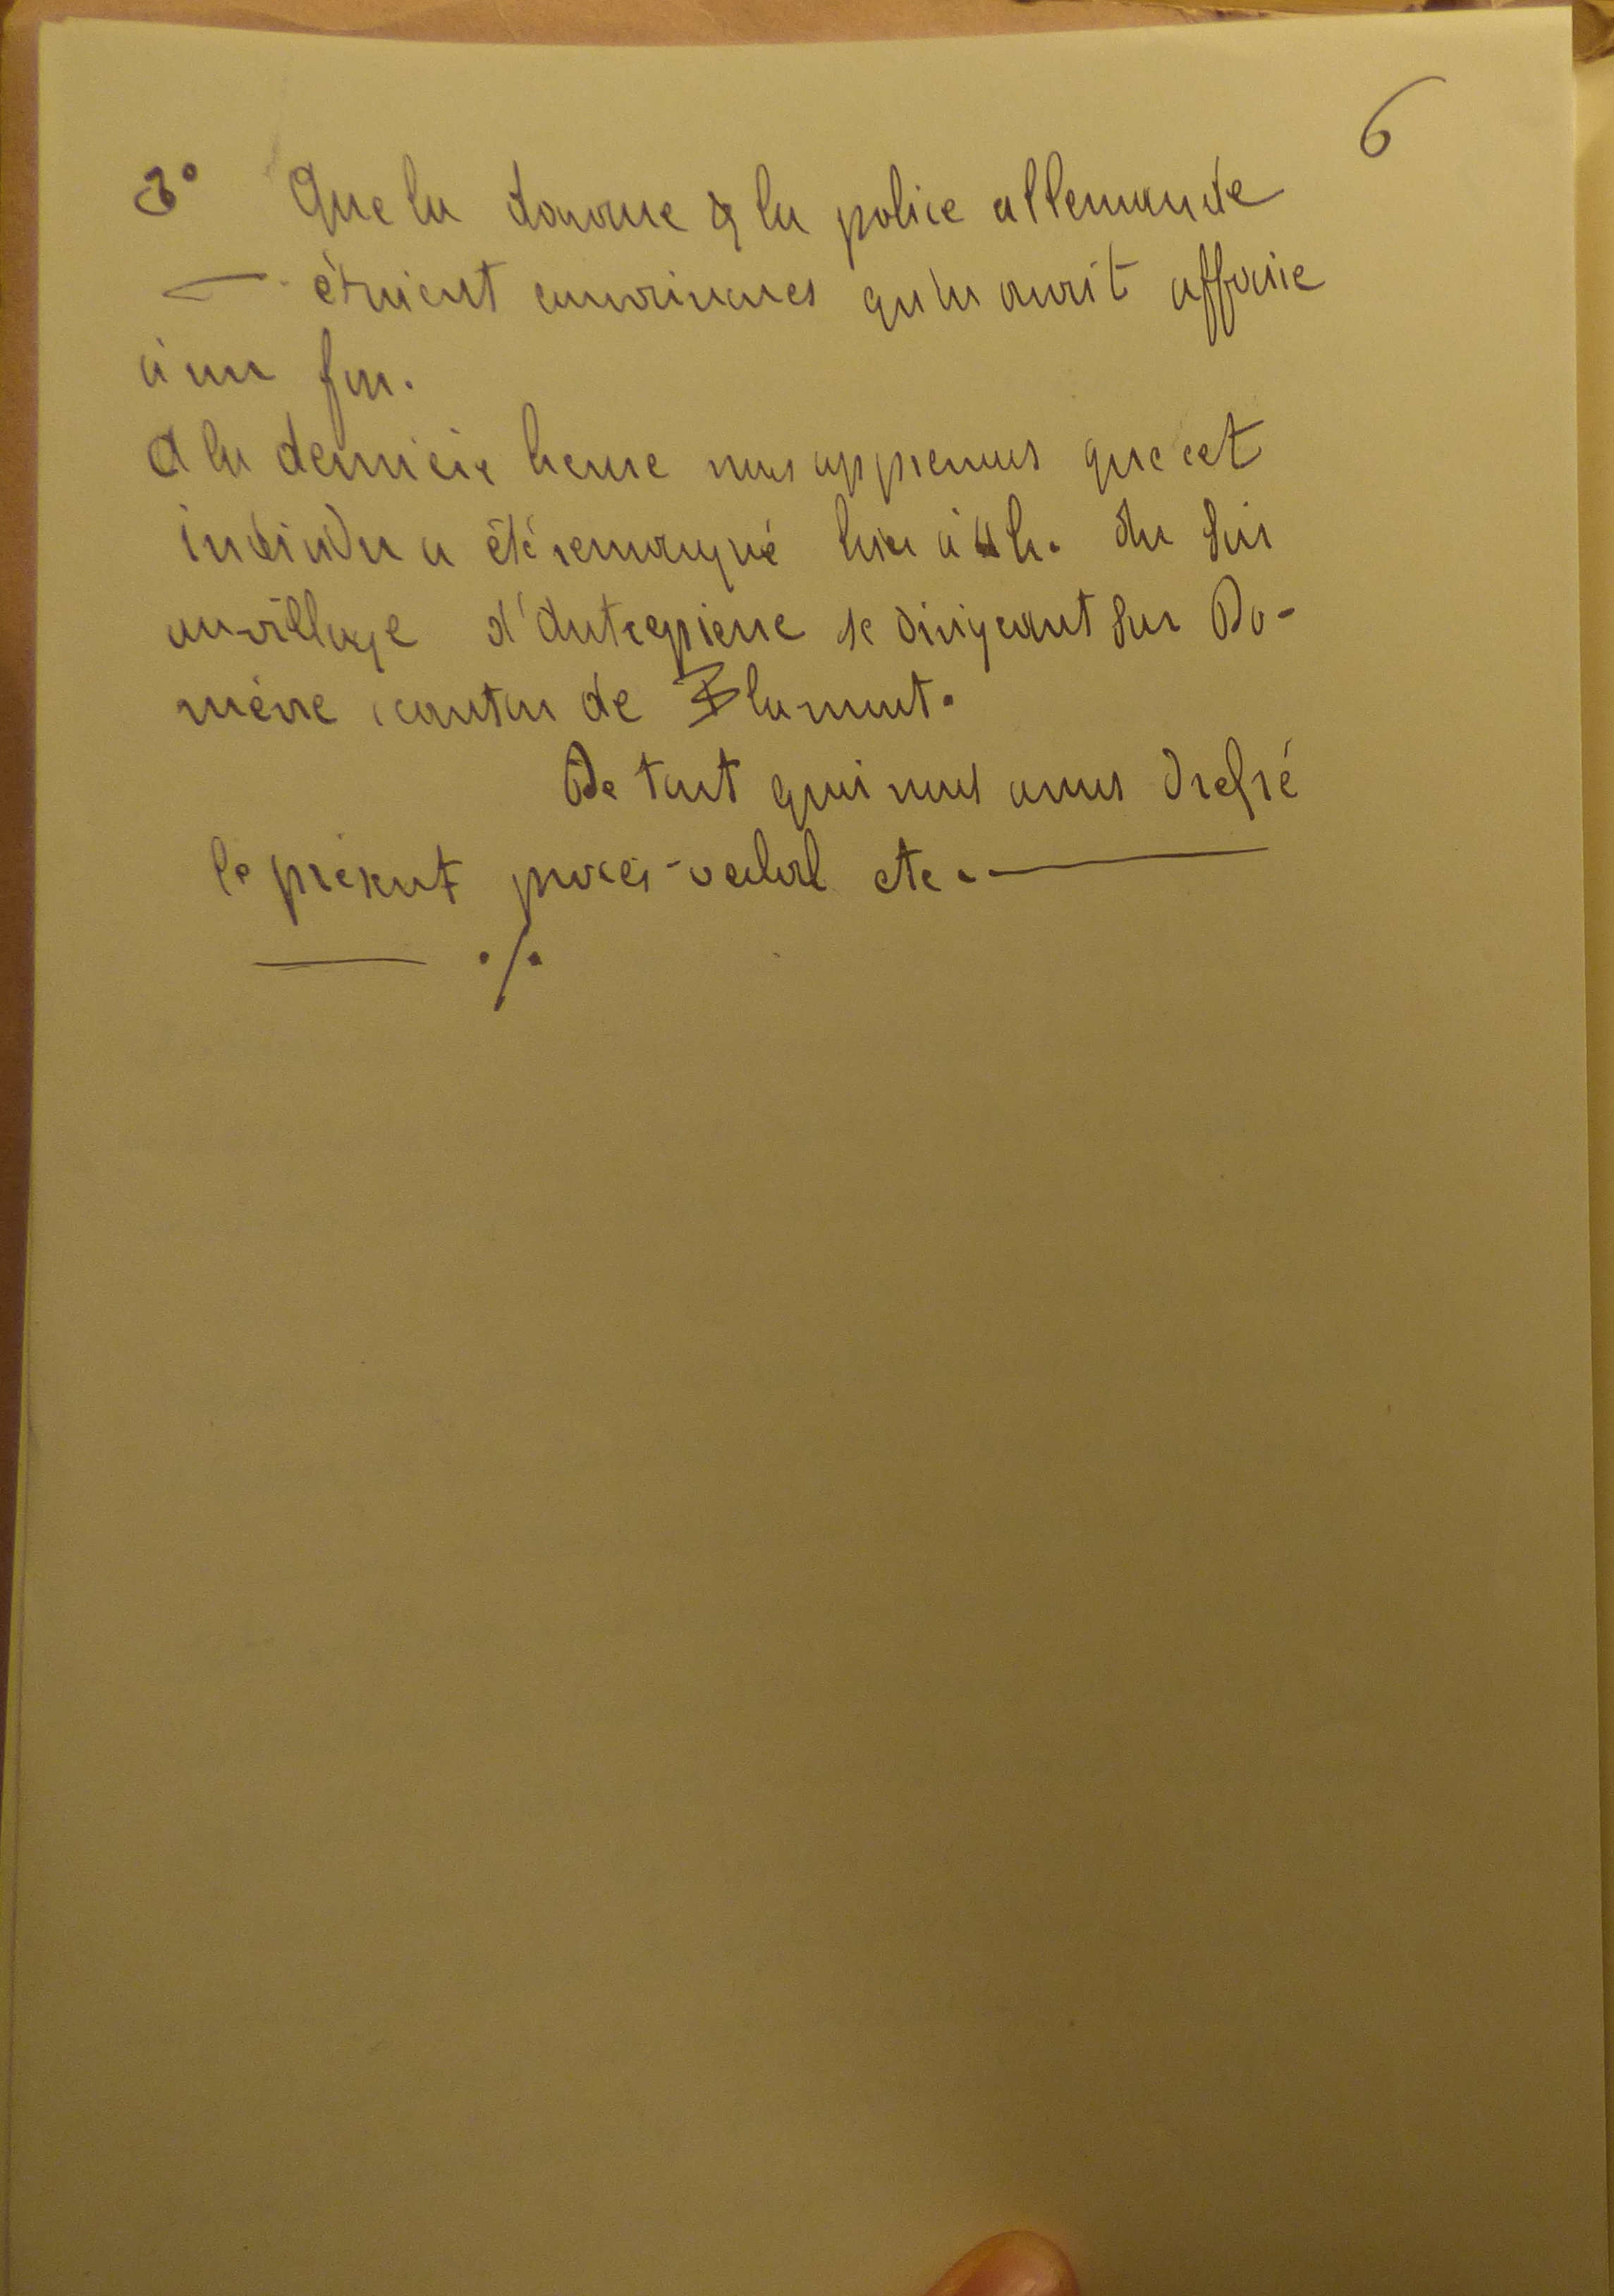 6
3° Que la douane & la police allemande
étaient convaincues qu'on avait affaire
à un fou.
A la dernière heure nous apprenons que cet
individu a été remarqué hier à 4 h. du soir
au village d'Autrepierre se dirigeant sur Do-
mèvre, canton de Blamont.
De tout quoi nous avons dressé
le présent procès-verbal etc.
./.